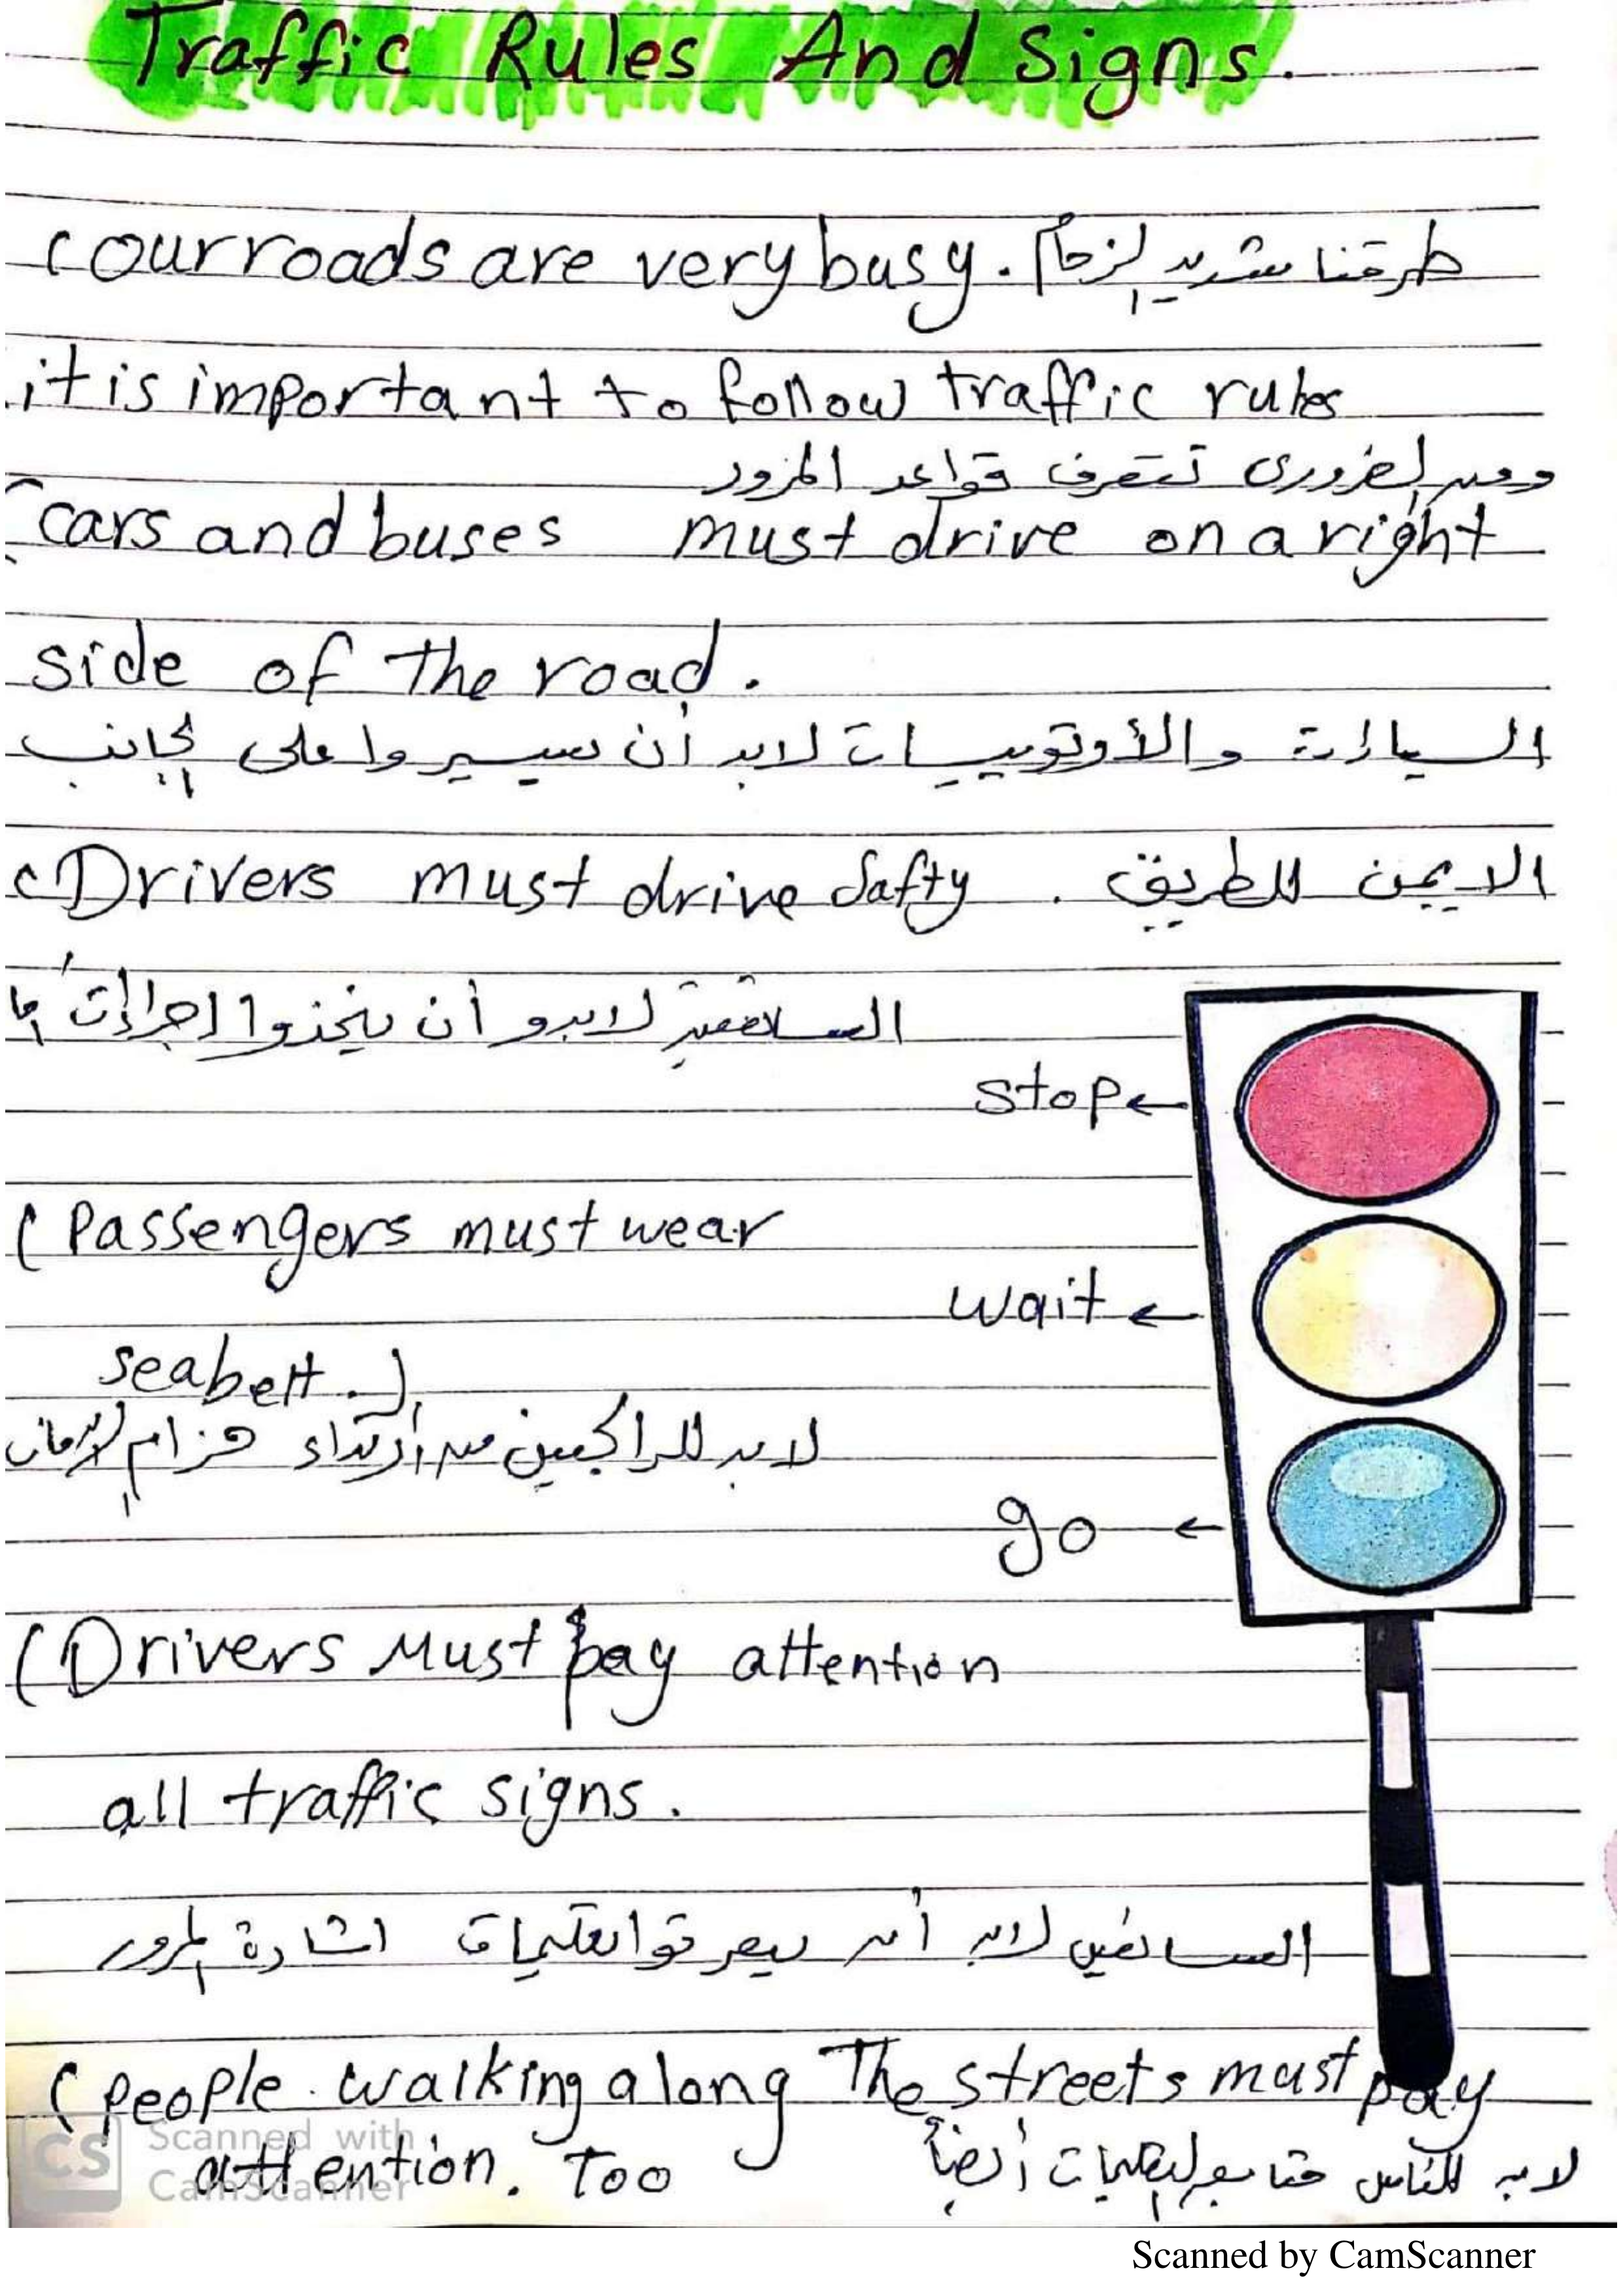 Traffic Rules And Signs.
(our roads are very busy. طرقنا شديد الزحام
it is important to follow traffic rules
ومن الضرورى تتعرف قواعد المرور
(cars and buses must drive on a right
side of the road.
السيارات والأوتوبيسات لابد أن يسيروا على الجانب
(Drivers must drive Safty . الايمن للطريق
لابدو أن يتخذوا اجراءات
stop←
(Passengers must wear
wait ←
seabelt .)
لابد للراكبين من أرتداء حزام الامان
go ←
(Drivers Must pay attention
all traffic signs.
السائقين لابد أن يعرقوا تعليمات اشارة المرور
(people walking along The streets must pay
attention. Too لابد للناس متابعة التعليمات أيضاً
CS Scanned with CamScanner
Scanned by CamScanner